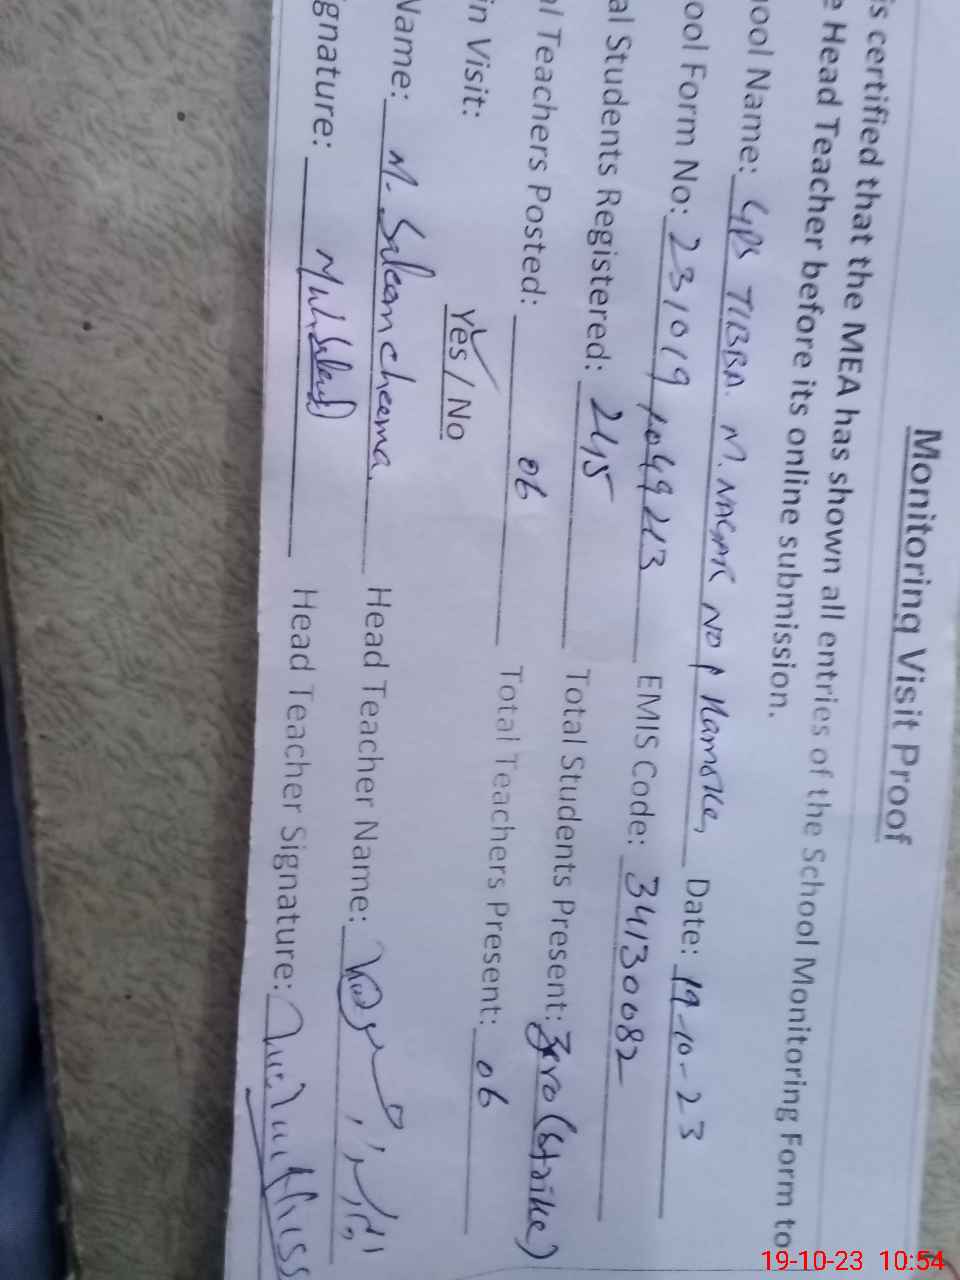 Monitoring Visit Proof
is certified that the MEA has shown all entries of the School Monitoring Form to
e Head Teacher before its online submission.
ool Name: GPS TIBBA. M. NAGAR NO 1 Date: 19-10-23
ool Form No: 231019 1049223 EMIS Code: 34130082
al Students Registered: 245 Total Students Present: Zero (strike)
al Teachers Posted: 06 Total Teachers Present: 06
in Visit: Yes / No
Name: M. Saleem cheema Head Teacher Name:
gnature: Head Teacher Signature:
19-10-23 10:54